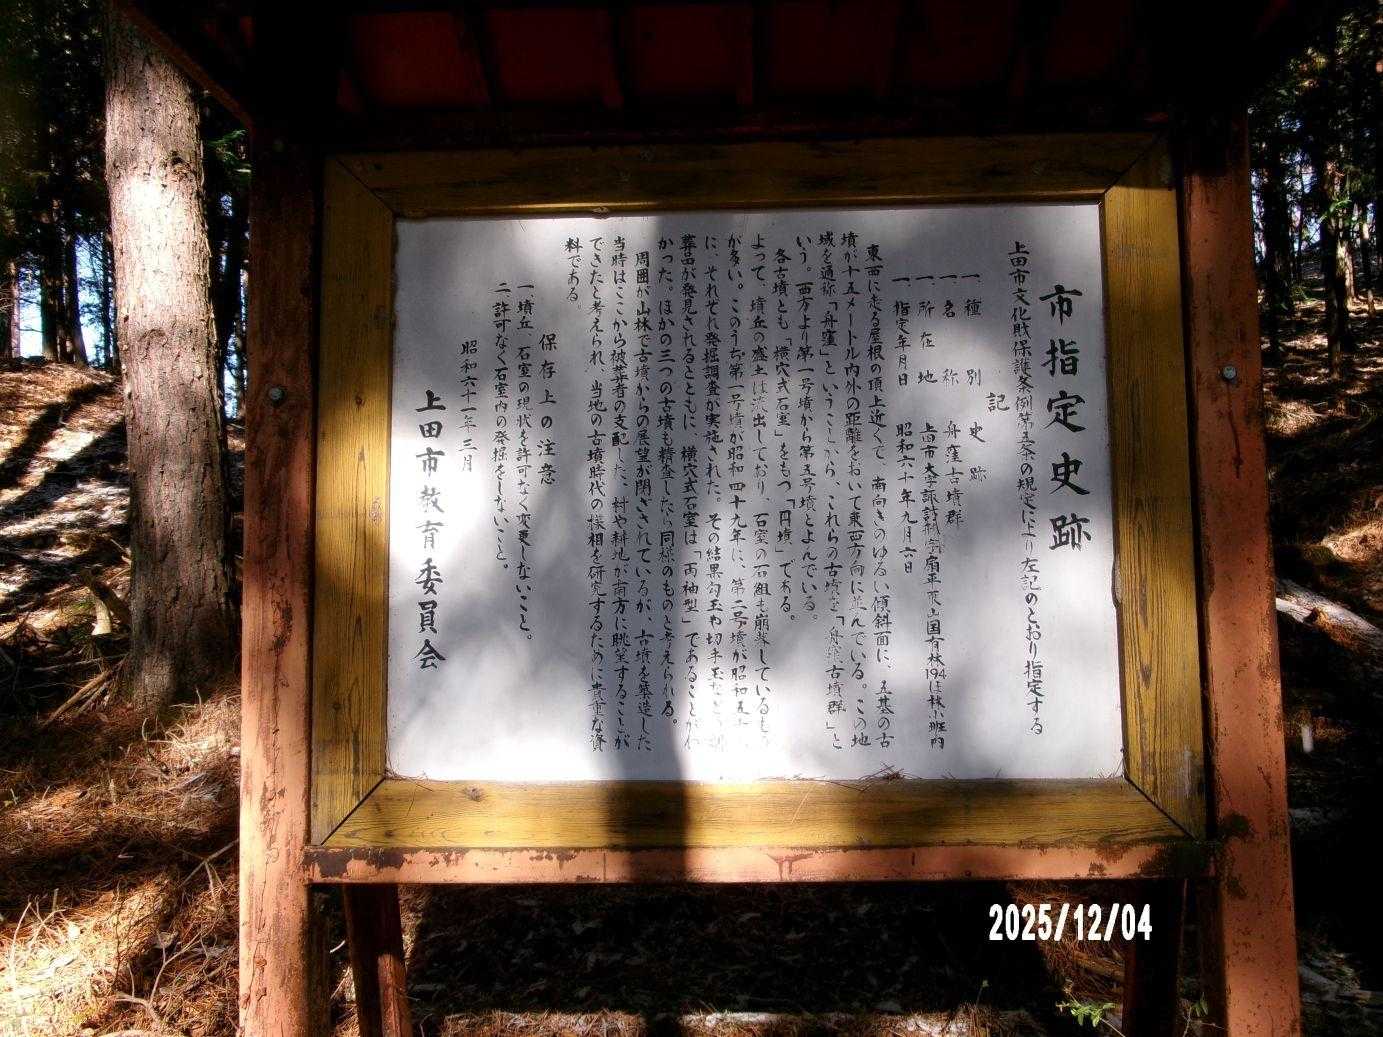 市指定史跡
上田市文化財保護条例第五条の規定により左記のとおり指定する
記
一、種別 史跡
一、名称 舟窪古墳群
一、所在地 上田市大字諏訪形字扇平 東山国有林194ほ林小班内
一、指定年月日 昭和六十年九月六日
東西に走る屋根の頂上近くで、南向きのゆるい傾斜面に、五基の古
墳が十五メートル内外の距離をおいて東西方向に並んでいる。この地
域を通称「舟窪」ということから、これらの古墳を「舟窪古墳群」と
いう。西方より第一号墳から第五号墳とよんでいる。
各古墳とも「横穴式石室」をもつ「円墳」である。
よって、墳丘の盛土は流出しており、石室の石組も崩落しているもの
が多い。このうち第一号墳が昭和四十九年に、第二号墳が昭和五十
に、それぞれ発掘調査が実施された。その結果勾玉や切子玉など
葬品が発見されるとともに、横穴式石室は「両袖型」であることがわ
かった。ほかの三つの古墳も精査したら同様のものと考えられる。
周囲が山林で古墳からの展望が閉ざされているが、古墳を築造した
当時はここから被葬者の支配した、村や耕地が南方に眺望することが
できたと考えられ、当地の古墳時代の様相を研究するために貴重な資
料である。
保存上の注意
一、墳丘、石室の現状を許可なく変更しないこと。
二、許可なく石室内の発掘をしないこと。
昭和六十一年三月
上田市教育委員会
2025/12/04